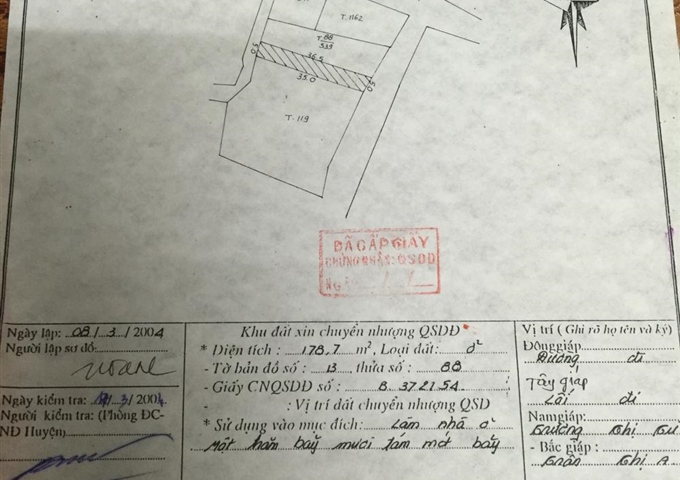 T.1162
T. 88
539
0.5
36.5
35.0
0.5
T.119
ĐÃ CẤP GIẤY
CHỨNG NHẬN: QSDĐ
NGÀY / /
Ngày lập: 08/3/2004
Người lập sơ đồ:
Ngày kiểm tra: /3/2004
Người kiểm tra: (Phòng ĐC-
NĐ Huyện)
Khu đất xin chuyển nhượng QSDĐ
* Diện tích : 178,7 m², Loại đất: ở
- Tờ bản đồ số : 13 thửa số : 88
- Giấy CNQSDĐ số : B 372154
: Vị trí đất chuyển nhượng QSD
* Sử dụng vào mục đích: Làm nhà ở
Một trăm bảy mươi tám m2 bảy
Vị trí ( Ghi rõ họ tên và ký)
Đônggiáp:
Đường đi
Tây giáp
Lối đi
Namgiáp:
Trương Thị
- Bắc giáp :
Trần Thị A